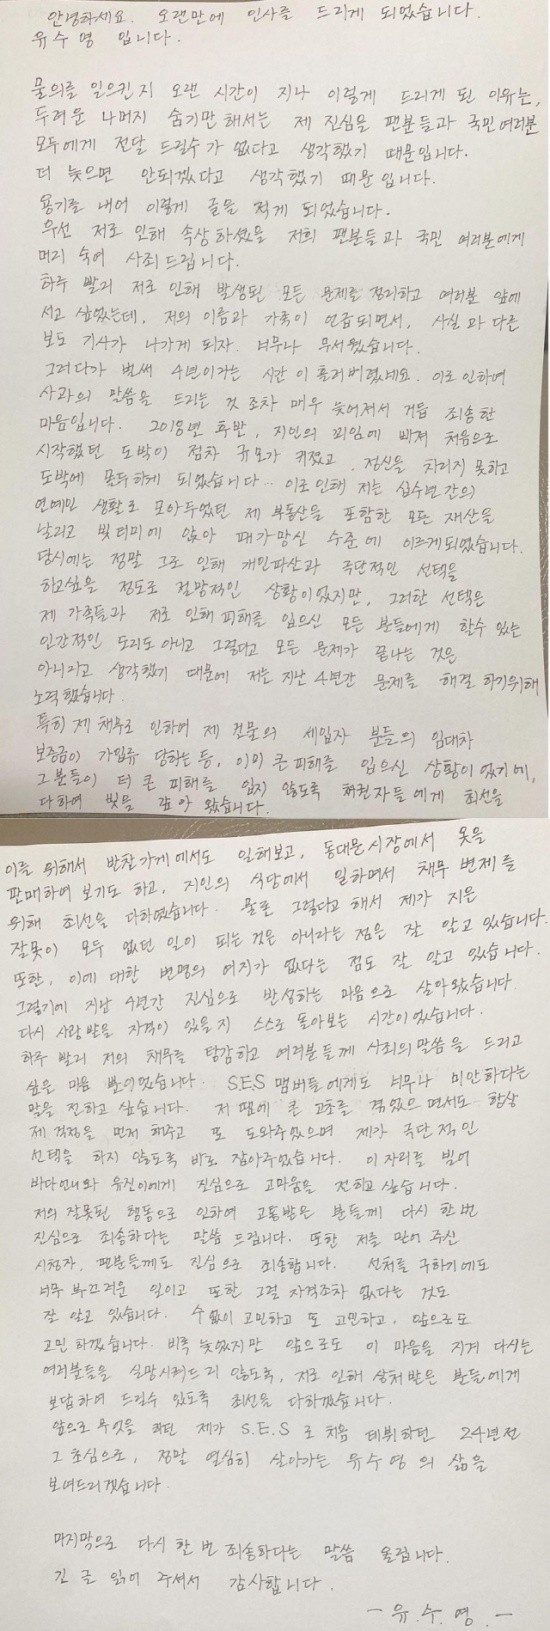 안녕하세요. 오랜만에 인사를 드리게 되었습니다.
유수영 입니다.
물의를 일으킨지 오랜 시간이 지나 이렇게 드리게 된 이유는,
두려운 나머지 숨기만 해서는 제 진심을 팬분들과 국민여러분
모두에게 전달 드릴수가 없다고 생각했기 때문입니다.
더 늦으면 안되겠다고 생각했기 때문입니다.
용기를 내어 이렇게 글을 적게 되었습니다.
우선 저로 인해 속상하셨을 저희 팬분들과 국민 여러분에게
머리 숙여 사죄드립니다.
하루 빨리 저로 인해 발생된 모든 문제를 정리하고 여러분 앞에
서고 싶었는데, 저의 이름과 가족이 언급되면서, 사실과 다른
보도 기사가 나가게 되자 너무나 무서웠습니다.
그러다가 벌써 4년이라는 시간이 흘러버렸네요. 이로 인하여
사과의 말씀을 드리는 것 조차 매우 늦어져서 거듭 죄송한
마음입니다. 2018년 후반, 지인의 꾀임에 빠져 처음으로
시작했던 도박이 점차 규모가 커졌고, 정신을 차리지 못하고
도박에 몰두하게 되었습니다... 이로 인해 저는 십수년간의
연예인 생활로 모아두었던 제 부동산을 포함한 모든 재산을
날리고 빚더미에 앉아 패가망신 수준에 이르게되었습니다.
당시에는 정말 그로 인해 개인파산과 극단적인 선택을
하고싶을 정도로 절망적인 상황이었지만, 그러한 선택은
제 가족들과 저로 인해 피해를 입으신 모든 분들에게 할수 있는
인간적인 도리도 아니고 그렇다고 모든 문제가 끝나는 것은
아니라고 생각했기 때문에 저는 지난 4년간 문제를 해결하기위해
노력했습니다.
특히 제 채무로 인하여 제 건물의 세입자 분들의 임대차
보증금이 가압류 당하는 등, 이미 큰 피해를 입으신 상황이었기에,
그분들이 더 큰 피해를 입지 않도록 채권자들에게 최선을
다하여 빚을 갚아 왔습니다.
이를 위해서 반찬가게에서도 일해보고, 동대문시장에서 옷을
판매하여 보기도 하고, 지인의 식당에서 일하면서 채무 변제를
위해 최선을 다하였습니다. 물론 그렇다고 해서 제가 지은
잘못이 모두 없던 일이 되는 것은 아니라는 점은 잘 알고 있습니다.
또한, 이에 대한 변명의 여지가 없다는 점도 잘 알고 있습니다.
그렇기에 지난 4년간 진심으로 반성하는 마음으로 살아왔습니다.
다시 사랑받을 자격이 있을지 스스로 돌아보는 시간이었습니다.
하루 빨리 저의 채무를 탕감하고 여러분들께 사죄의 말씀을 드리고
싶은 마음 뿐이었습니다. SES 맴버들에게도 너무나 미안하다는
말을 전하고 싶습니다. 저 땜에 큰 고초를 겪었으면서도 항상
제 걱정을 먼저 해주고 또 도와주었으며 제가 극단적인
선택을 하지 않도록 바로 잡아주었습니다. 이 자리를 빌어
바다언니와 유진이에게 진심으로 고마움을 전하고싶습니다.
저의 잘못된 행동으로 인하여 고통받은 분들께 다시 한번
진심으로 죄송하다는 말씀 드립니다. 또한 저를 믿어주신
시청자, 팬분들께도 진심으로 죄송합니다. 선처를 구하기에도
너무 부끄러운 일이고 또한 그럴 자격조차 없다는 것도
잘 알고 있습니다. 수없이 고민하고 또 고민하고, 앞으로도
고민 하겠습니다. 비록 늦었지만 앞으로도 이 마음을 지켜 다시는
여러분들을 실망시켜드리지 않도록, 저로 인해 상처받은 분들에게
보답하여 드릴수 있도록 최선을 다하겠습니다.
앞으로 무엇을 하던 제가 S.E.S로 처음 데뷔하던 24년전
그 초심으로, 정말 열심히 살아가는 유수영의 삶을
보여드리겠습니다.
마지막으로 다시 한번 죄송하다는 말씀 올립니다.
긴 글 읽어 주셔서 감사합니다.
- 유.수.영. -